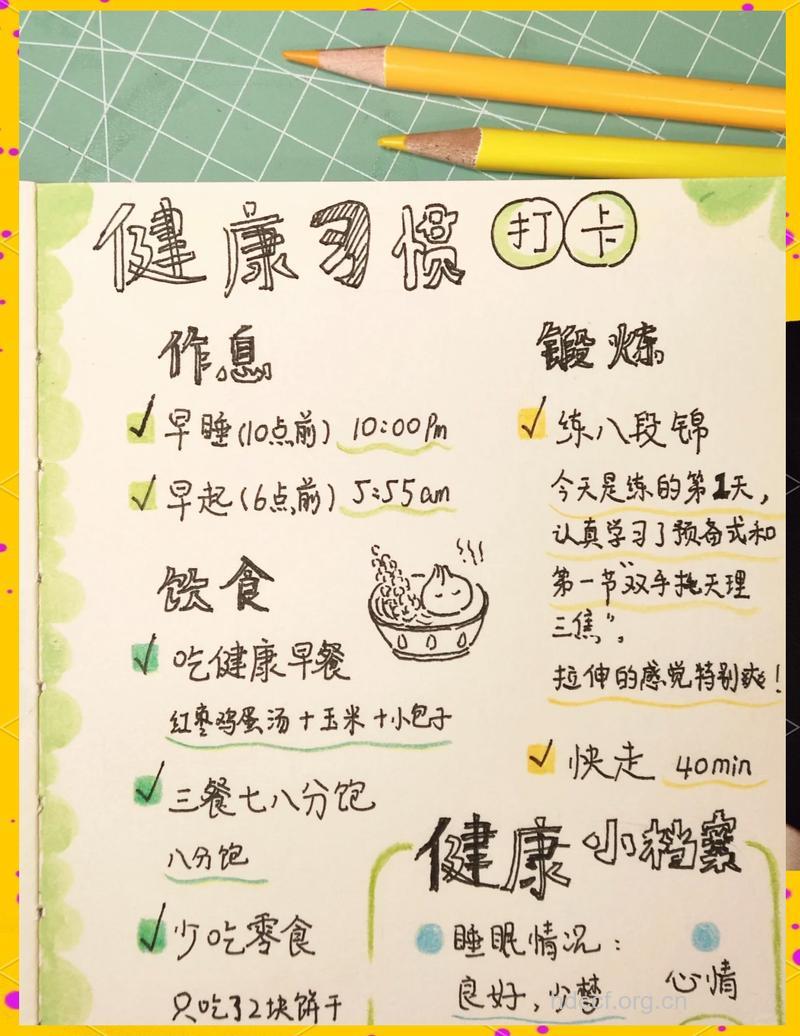 健康习惯 打卡
作息
早睡(10点前) 10:00Pm
早起(6点前) 5:55am
饮食
吃健康早餐
红枣鸡蛋汤+玉米+小包子
三餐七八分饱
八分饱
少吃零食
只吃了2块饼干
锻炼
练八段锦
今天是练的第1天，
认真学习了预备式和
第一节“双手托天理
三焦”。
拉伸的感觉特别爽！
快走 40min
健康小档案
睡眠情况：
良好，少梦
心情